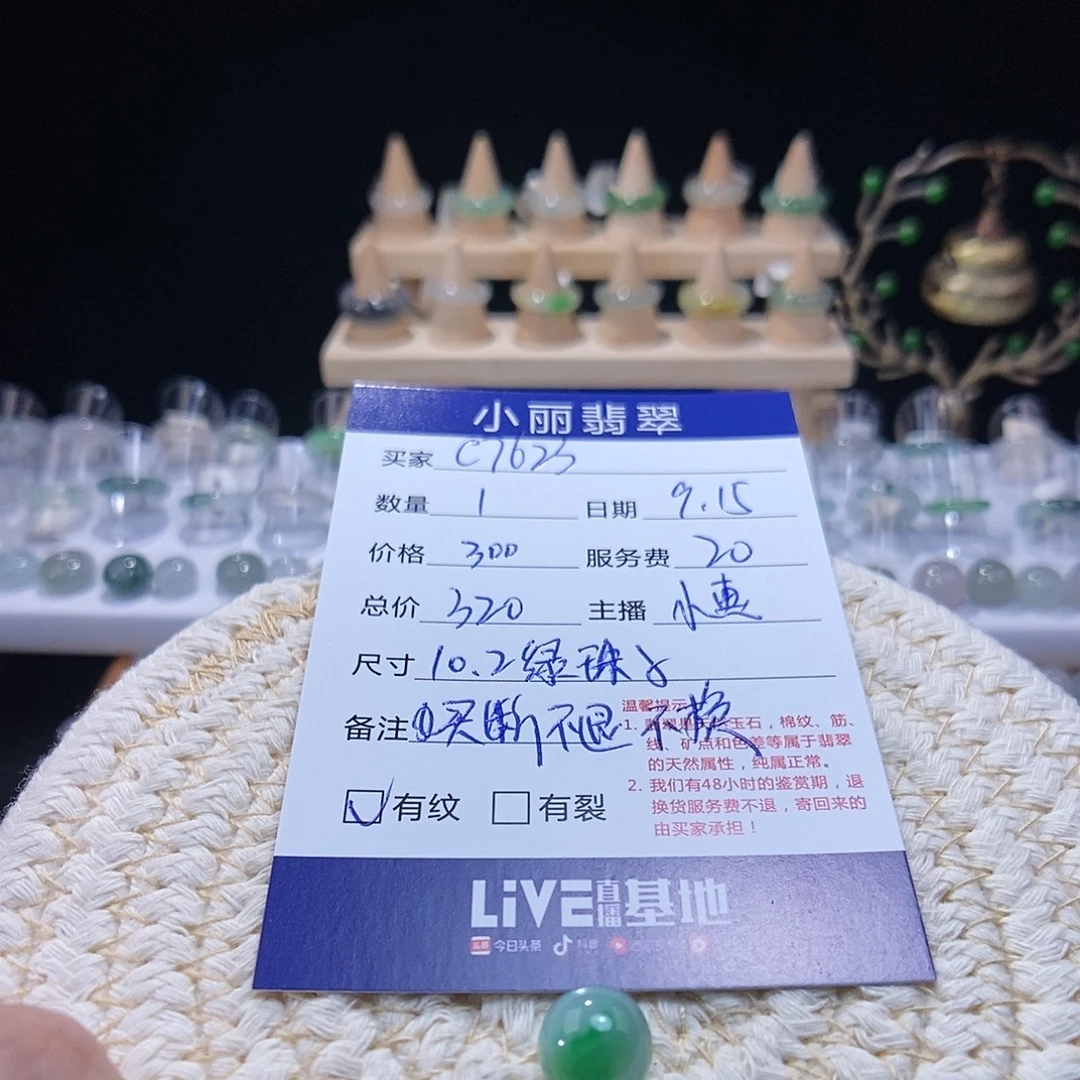 小丽翡翠
买家 C7623
数量 1 日期 9.15
价格 300 服务费 20
总价 320 主播 小惠
尺寸 10.2绿珠子
备注 买断不退不换
温馨提示
1. 翡翠是天然玉石，棉纹、筋、
线、矿点和色差等属于翡翠
的天然属性，纯属正常。
2. 我们有48小时的鉴赏期，退
换货服务费不退，寄回来的
由买家承担！
有纹 有裂
LiVE直播基地
头条 今日头条 抖音